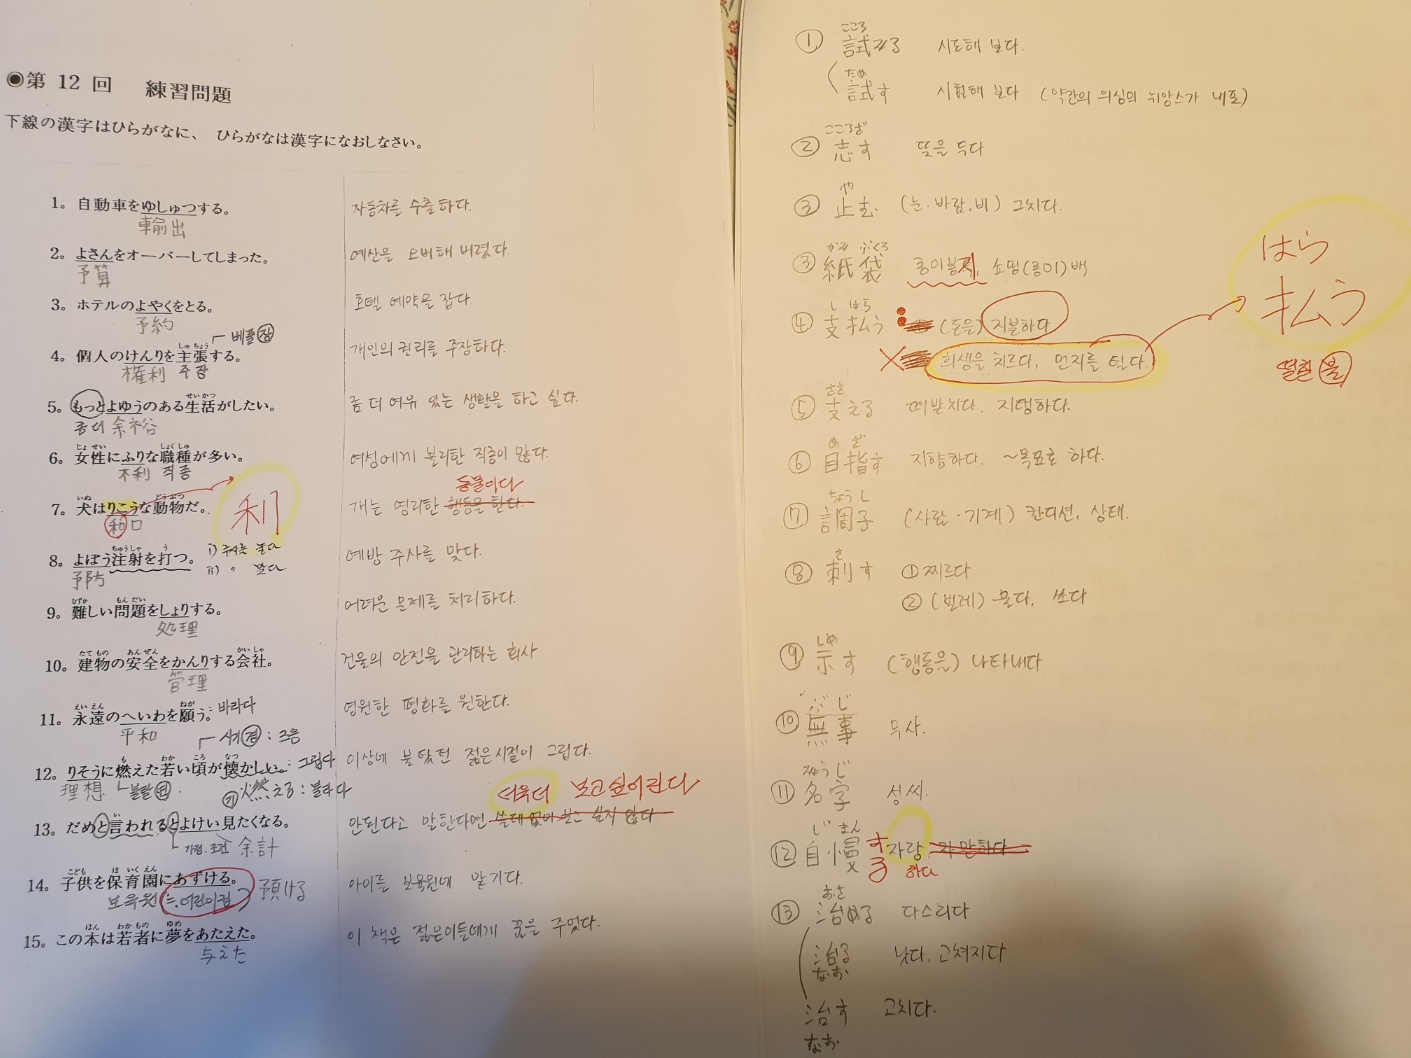 ◉第 12 回 練習問題
下線の漢字はひらがなに、 ひらがなは漢字になおしなさい。
1。自動車をゆしゅつする。 자동차를 수출하다.
輸出
2。よさんをオーバーしてしまった。 예산을 오버해 버렸다.
予算
3。ホテルのよやくをとる。 호텔 예약을 잡다.
予約 베풀 장
しゅ ちょう
4。個人のけんりを主張する。 개인의 권리를 주장하다.
権利 주장
せいかつ
5。もっとよゆうのある生活がしたい。 좀 더 여유 있는 생활을 하고 싶다.
좀 더 余裕
じょ せい しょくしゅ
6。女性にふりな職種が多い。 여성에게 불리한 직종이 많다.
不利 직종
동물이다
いぬ どうぶつ
7。犬はりこうな動物だ。 개는 영리한 행동을 한다.
利口 利
ちゅうしゃ う
8。よぼう注射を打つ。 예방 주사를 맞다.
予防
i) 주사를 놓다
ii) 〃 맞다
むずか もんだい
9。難しい問題をしょりする。 어려운 문제를 처리하다.
処理
たてもの あんぜん かいしゃ
10。建物の安全をかんりする会社。 건물의 안전을 관리하는 회사
管理
えいえん ねが
11。永遠のへいわを願う。: 바라다 영원한 평화를 원한다.
平和
も わか ころ なつ
12。りそうに燃えた若い頃が懐かしい。: 그립다 이상에 불탔던 젊은시절이 그립다.
理想 불탈 연 燃える: 불타다
더욱더 보고싶어진다
13。だめと言われるとよけい見たくなる。 안된다고 말한다면
가정.조건 余計
こども ほ いくえん
14。子供を保育園にあずける。 아이를 보육원에 맡기다.
보육원(≒어린이집) 預ける
ほん わかもの ゆめ
15。この本は若者に夢をあたえた。 이 책은 젊은이들에게 꿈을 주었다.
与えた
こころ
① 試みる 시도해 보다.
ため
試す 시험해 보다 (약간의 의심의 뉘앙스가 내포)
こころざ
② 志す 뜻을 두다
や
③ 止む (눈.바람.비) 그치다.
かみ ぶくろ
③ 紙袋 종이봉지, 쇼핑(종이)백
し はら
④ 支払う : (돈을) 지불하다
X 희생을 치르다, 먼지를 털다.
はら
払う
떨칠 불
ささ
⑤ 支える 떠받치다. 지탱하다.
め ざ
⑥ 目指す 지향하다. ~목표로 하다.
ちょうし
⑦ 調子 (사람・기계) 컨디션, 상태.
さ
⑧ 刺す ① 찌르다
② (벌레) 물다, 쏘다
しめ
⑨ 示す (행동을) 나타내다
ぶじ
⑩ 無事 무사.
みょうじ
⑪ 名字 성씨.
じ まん
⑫ 自慢する 자랑하다 자만하다
おさ
⑬ 治める 다스리다
治る 낫다. 고쳐지다
なお
治す 고치다.
なお